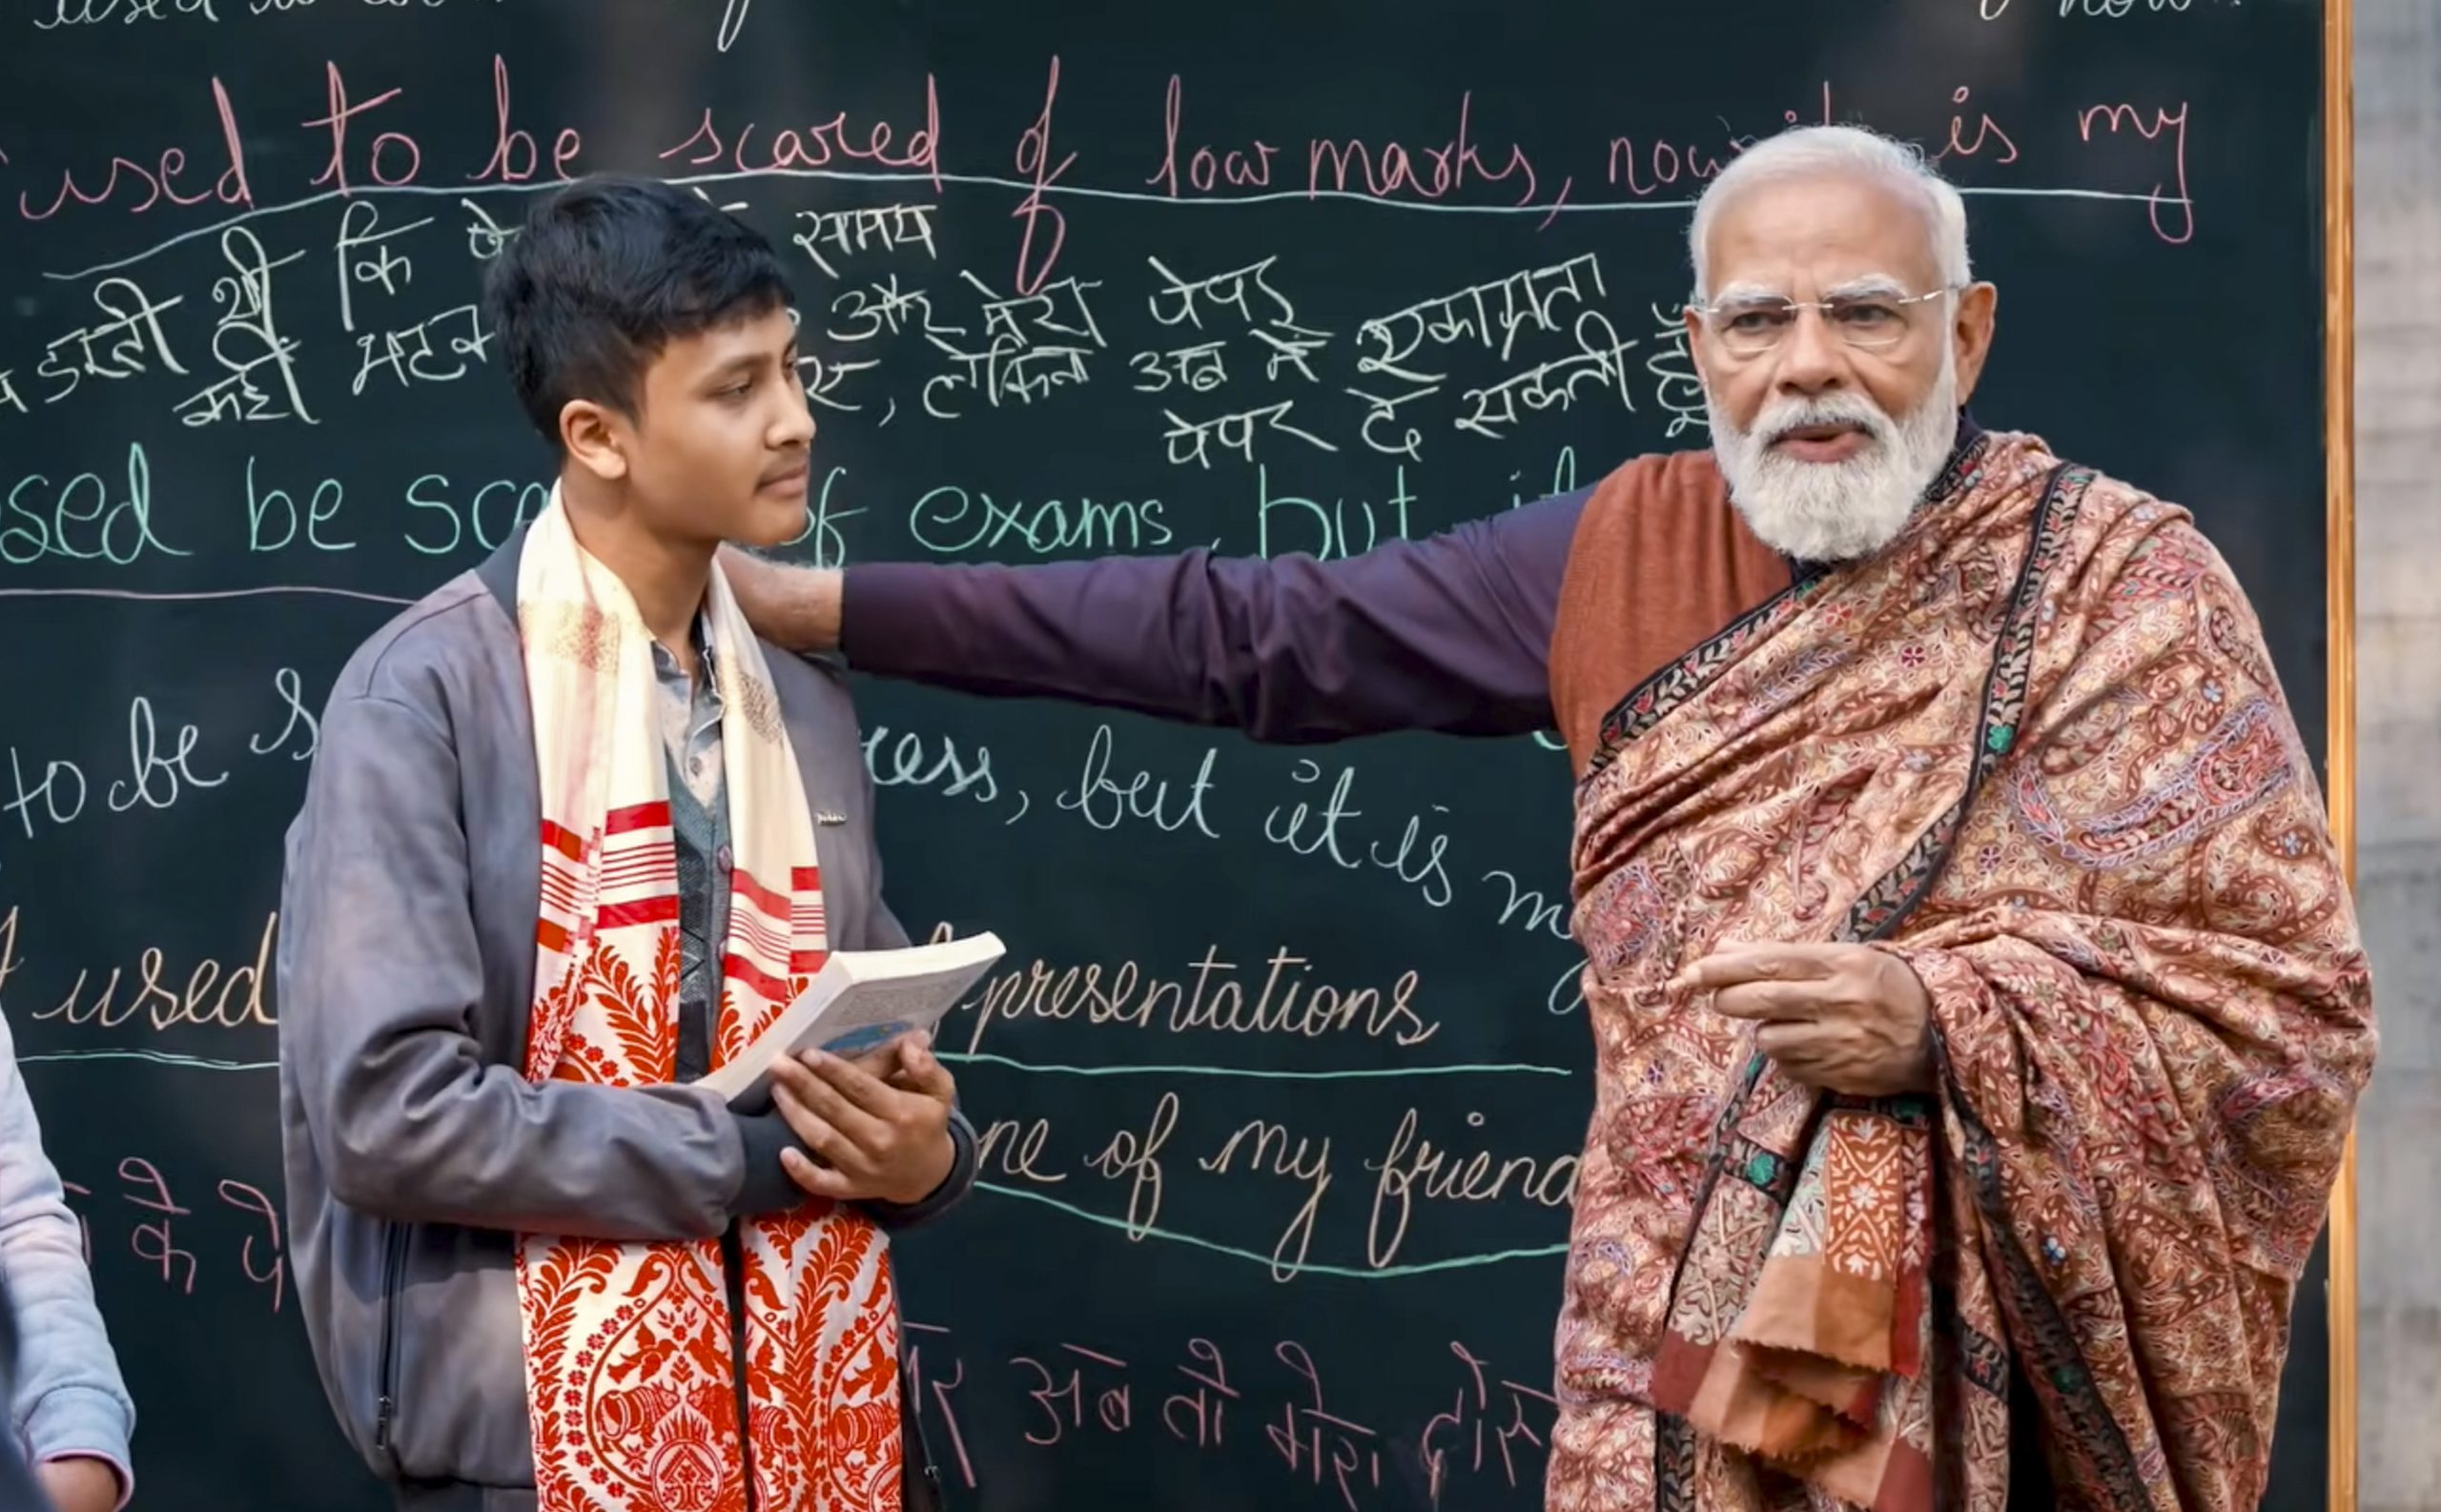 used to be scared of low marks, now is my
डरती थी कि समय
और मेरा पेपर
कही भटक लेकिन अब में एकाग्रता
पेपर दे सकती हूँ
sed be sca of exams, but it
to be s ress, but it is my
I used presentations
ne of my friend
के पे
अब तो मेरा